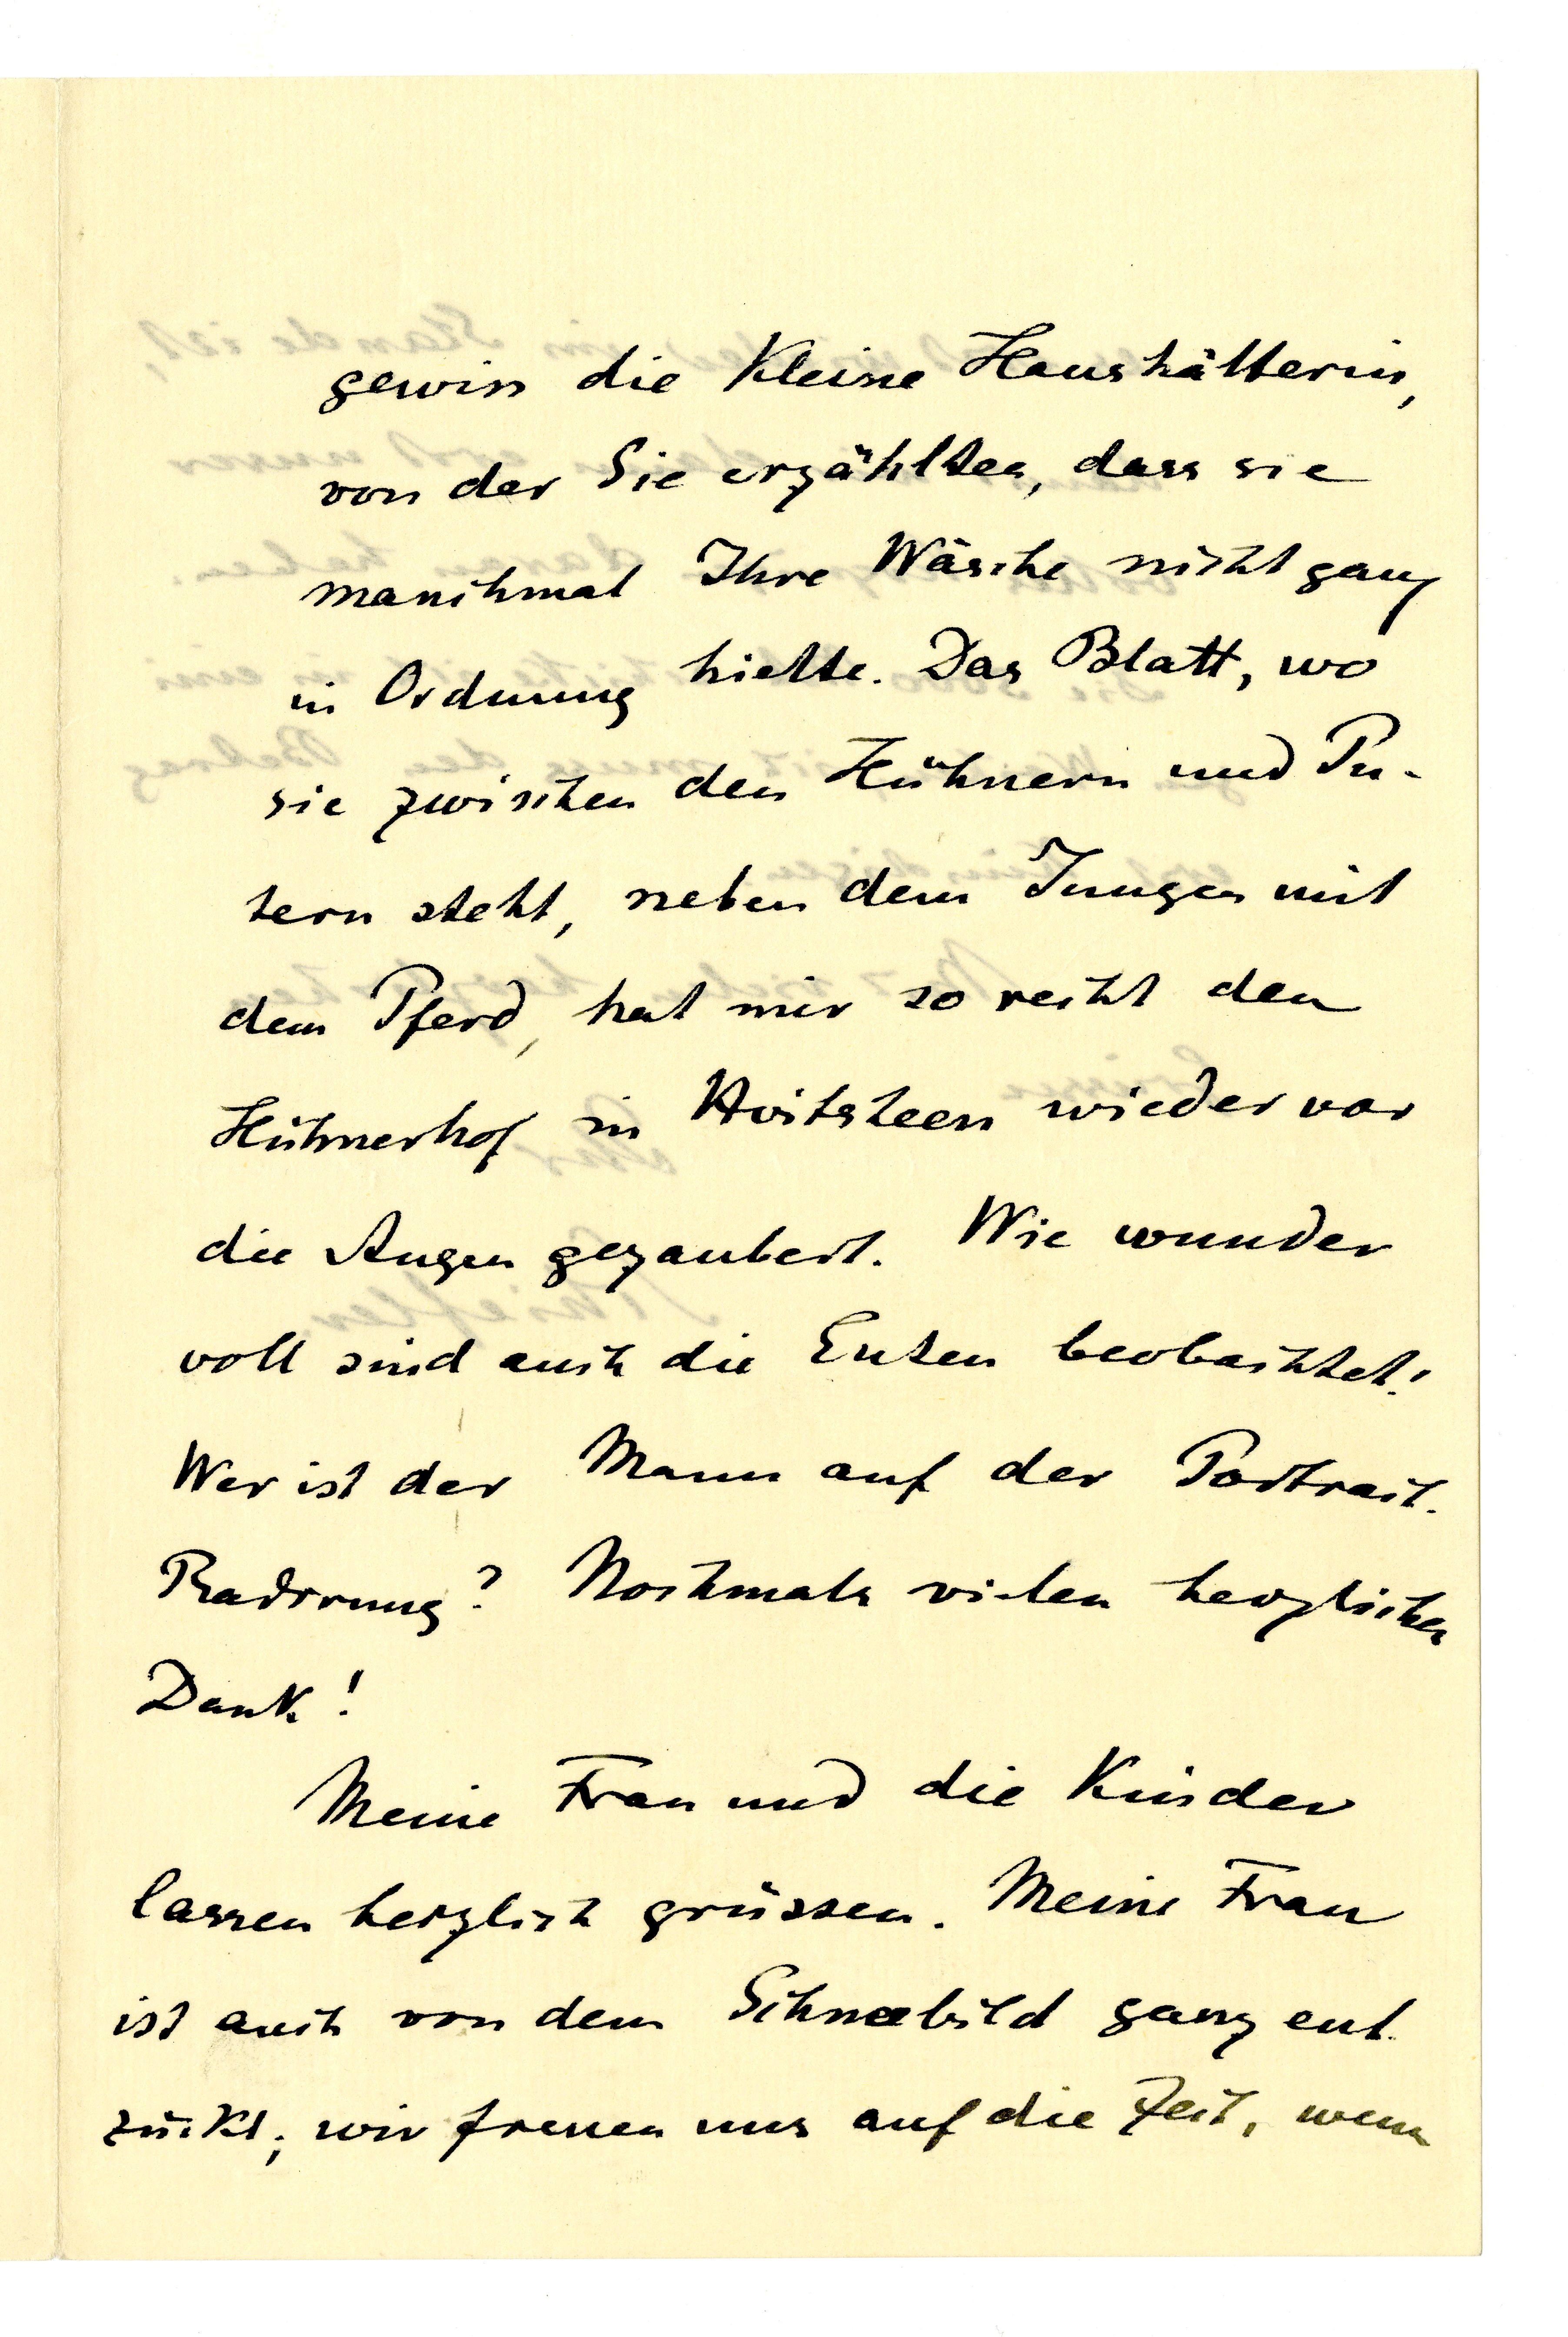 gewiss die Kleine Haushälterin,
von der Sie erzählten, dass sie
manchmal Ihre Wäsche nicht ganz
in Ordnung hielte. Das Blatt, wo
sie zwischen den Hühnern und Pu-
tern steht, neben dem Jungen mit
dem Pferd, hat mir so recht den
Hühnerhof in Hvitsteen wieder vor
die Augen gezaubert. Wie wunder
voll sind auch die Enten beobachtet!
Wer ist der Mann auf der Portrait-
Radirung? Nochmals vielen herzlichen
Dank!
Meine Frau und die Kinder
lassen herzlich grüssen. Meine Frau
ist auch von dem Schneebild ganz ent-
zückt; wir freuen uns auf die Zeit, wenn